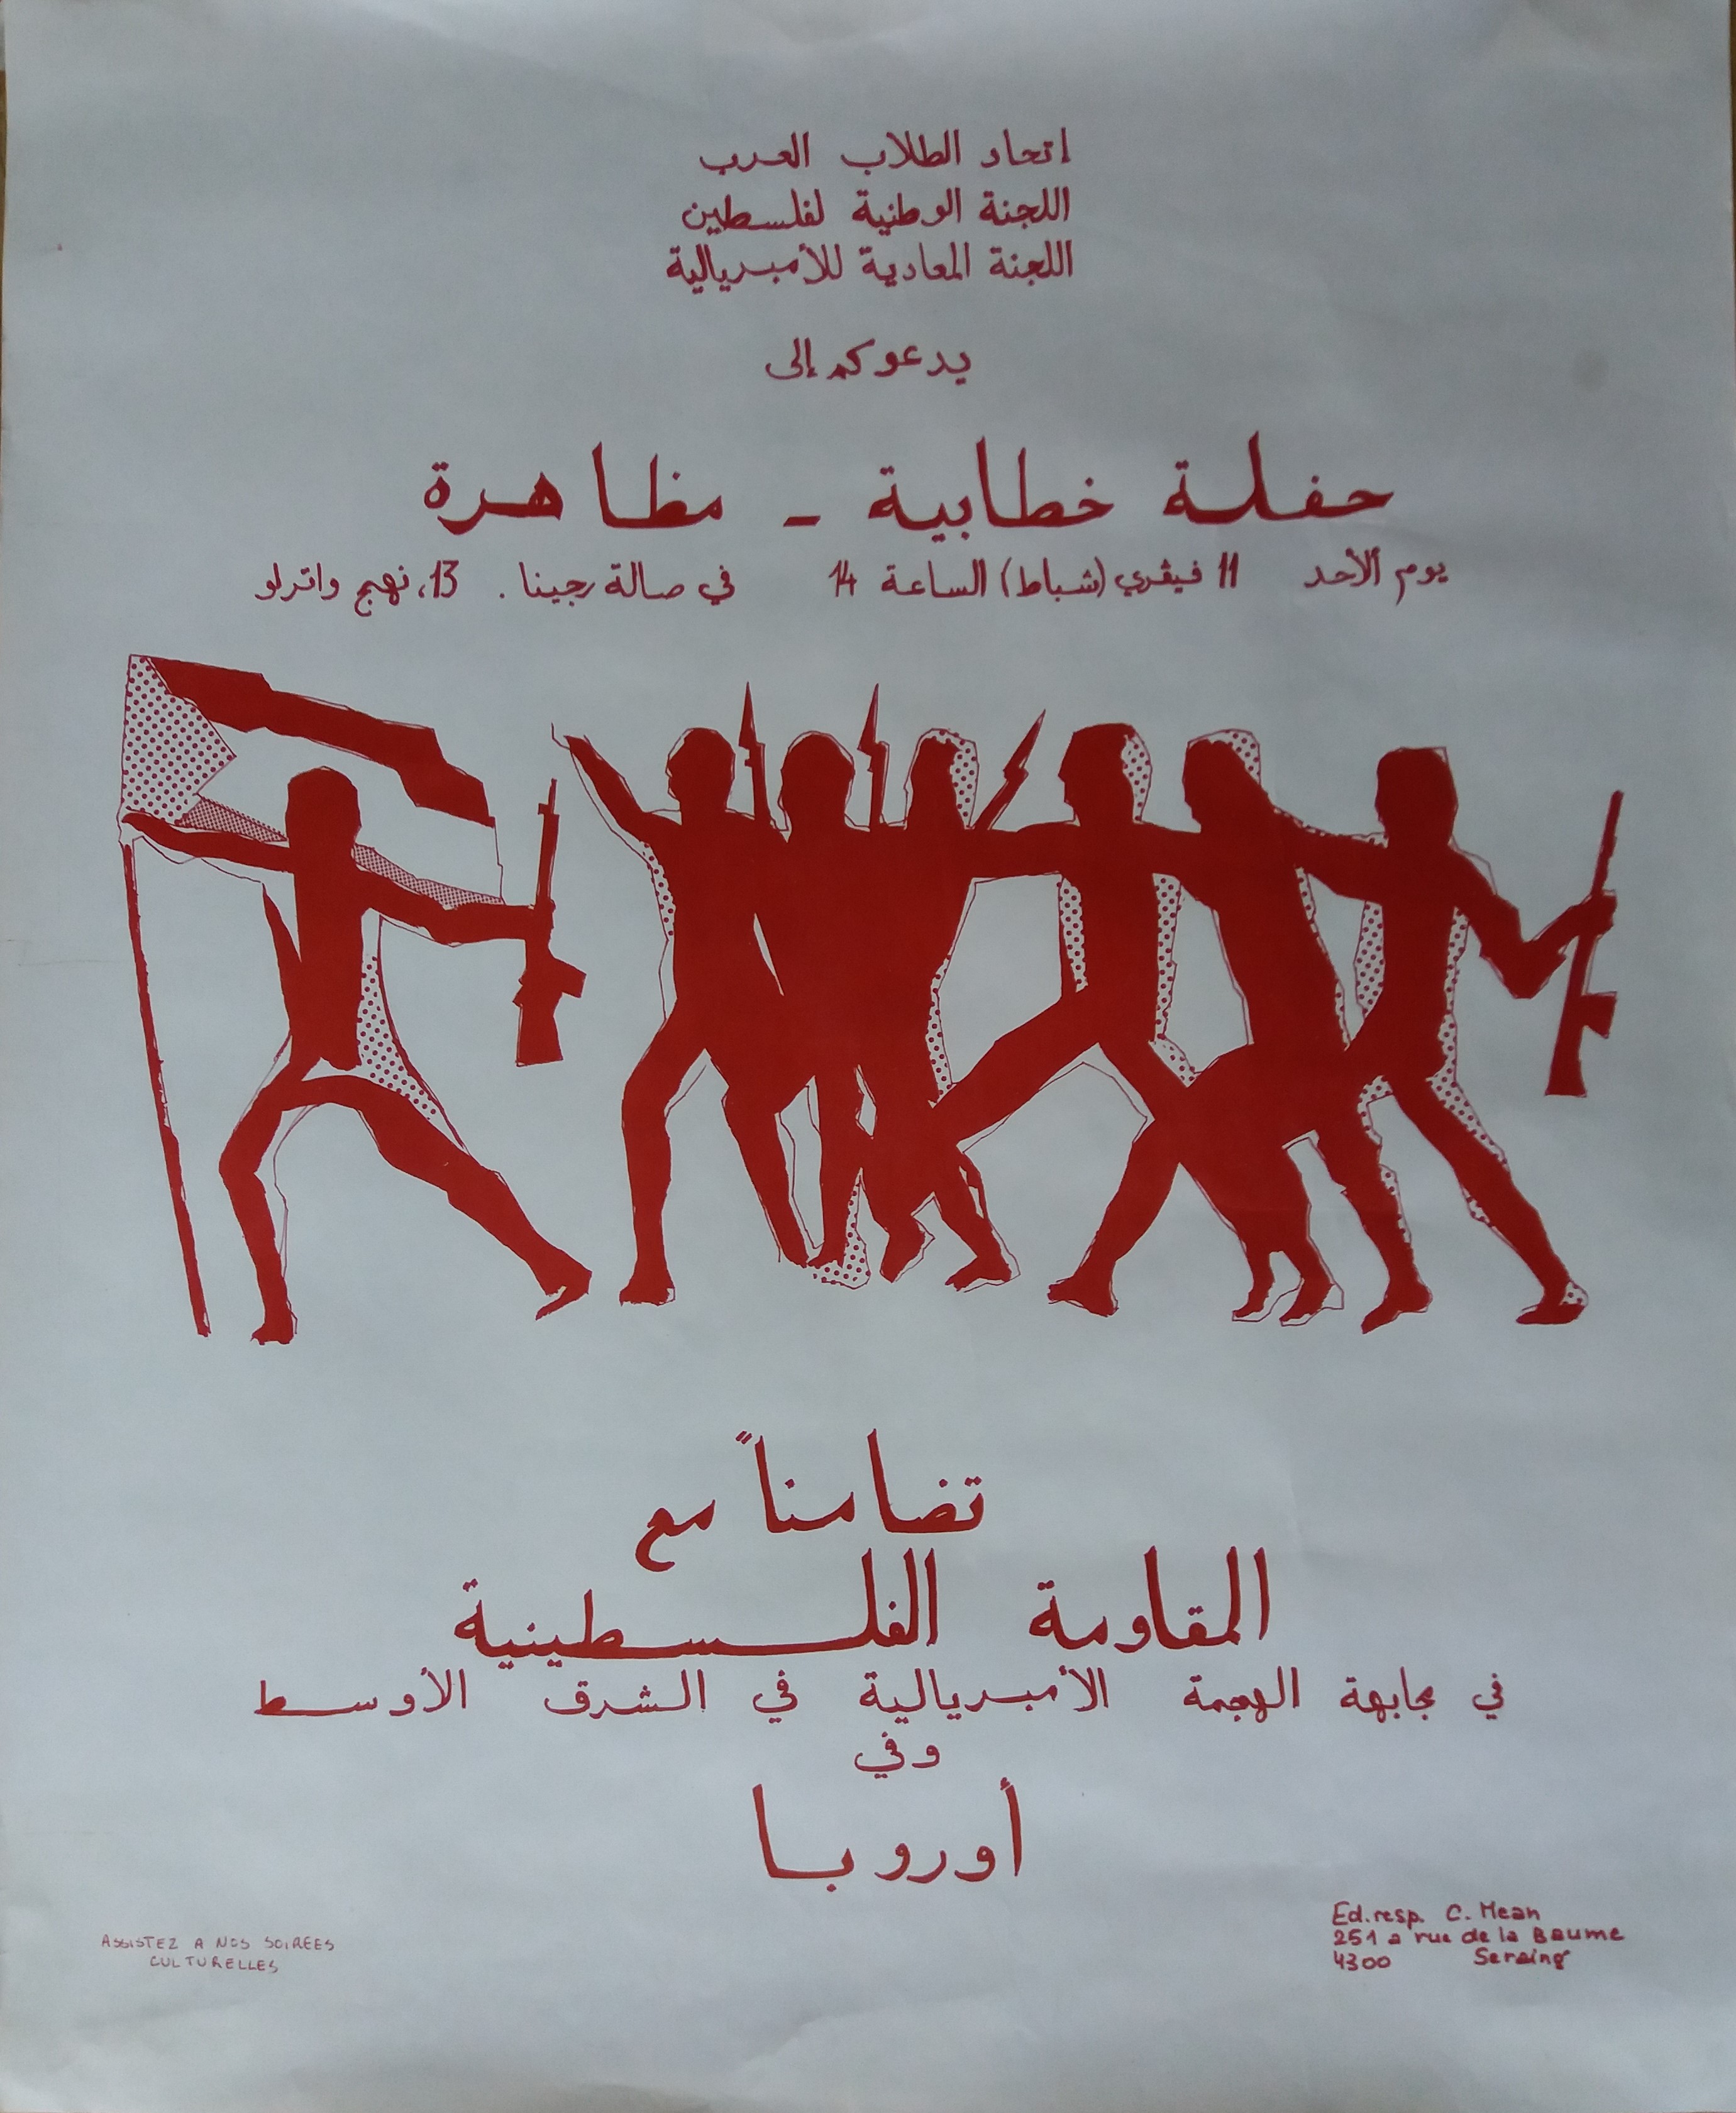 اتحاد الطلاب العرب
اللجنة الوطنية لفلسطين
اللجنة المعادية للأمبريالية
يدعوكم إلى
حفلة خطابية - مظاهرة
يوم الأحد 11 فيڤري (شباط) الساعة 14 في صالة رجينا. 13، نهج واترلو
تضامناً مع
المقاومة الفلسطينية
في مجابهة الهجمة الأمبريالية في الشرق الأوسط
وفي
أوروبا
ASSISTEZ A NOS SOIREES
CULTURELLES
Ed.resp. C. Mean
251 a rue de la Baume
4300 Seraing